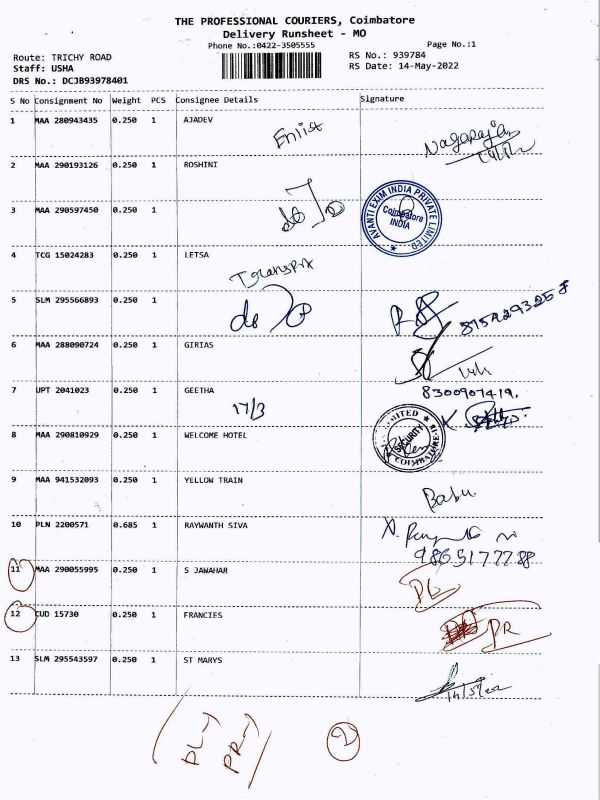 THE PROFESSIONAL COURIERS, Coimbatore
Delivery Runsheet - MO
Phone No.:0422-3505555
Page No.:1
Route: TRICHY ROAD
RS No.: 939784
Staff: USHA
RS Date: 14-May-2022
DRS No.: DCJB93978401
S No Consignment No Weight PCS Consignee Details Signature
1 MAA 280943435 0.250 1 AJADEV
Nagarajan
2 MAA 290193126 0.250 1 ROSHINI
3 MAA 290597450 0.250 1
do
AVANTI EXIM INDIA PRIVATE LIMITED
Coimbatore
INDIA
4 TCG 15024283 0.250 1 LETSA
5 SLM 295566893 0.250 1
do
6 MAA 288090724 0.250 1 GIRIAS
7 UPT 2041023 0.250 1 GEETHA
8300907419.
17/3
8 MAA 290810929 0.250 1 WELCOME HOTEL
LIMITED
SECURITY
COIMBATORE
9 MAA 941532093 0.250 1 YELLOW TRAIN
Babu
10 PLN 2200571 0.685 1 RAYWANTH SIVA
9865177788
11 MAA 290055995 0.250 1 S JAWAHAR
12 CUD 15730 0.250 1 FRANCIES
PR
13 SLM 295543597 0.250 1 ST MARYS
14/5/22
2